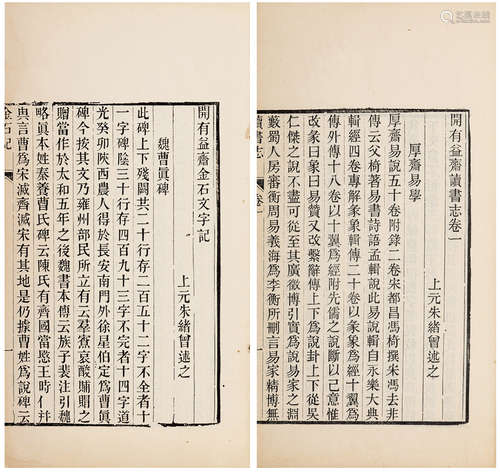 開有益齋讀書志卷一
上元朱緒曾述之
厚齋易學
厚齋易說五十卷附錄二卷宋都昌馮椅撰朱馮去非
傳云父椅著易書詩語孟輯說此易說輯自永樂大典
輯經四卷專解彖象輯傳二十卷以彖象爲經十翼爲
傳外傳十八卷以十翼爲經附先儒之說斷以己意惟
改彖曰象曰爲贊又改繫辭傳上下爲說卦上下從吳
仁傑之說不盡可從至其廣徵博引實爲說易家之淵
藪蜀人房審權周易義海爲李衡所刪言易家精博無
讀書志
卷一
一
開有益齋金石文字記
上元朱緒曾述之
魏曹眞碑
此碑上下殘闕共二十行存二百五十二字不全者十
一字碑陰三十行存四百九十三字不完者十四字道
光癸卯陝西農人得於長安南門外徐星伯定爲曹眞
碑今按其文乃雍州部民所立有云羣寮哀酸賻賵之
贈當作於太和五年之後魏書本傳云族子裴注引魏
略眞本姓秦養曹氏碑云陳氏有齊國當愍王時仁并
與言曹爲宋滅齊滅宋有其地是仍據曹姓爲說碑云
金石記
一